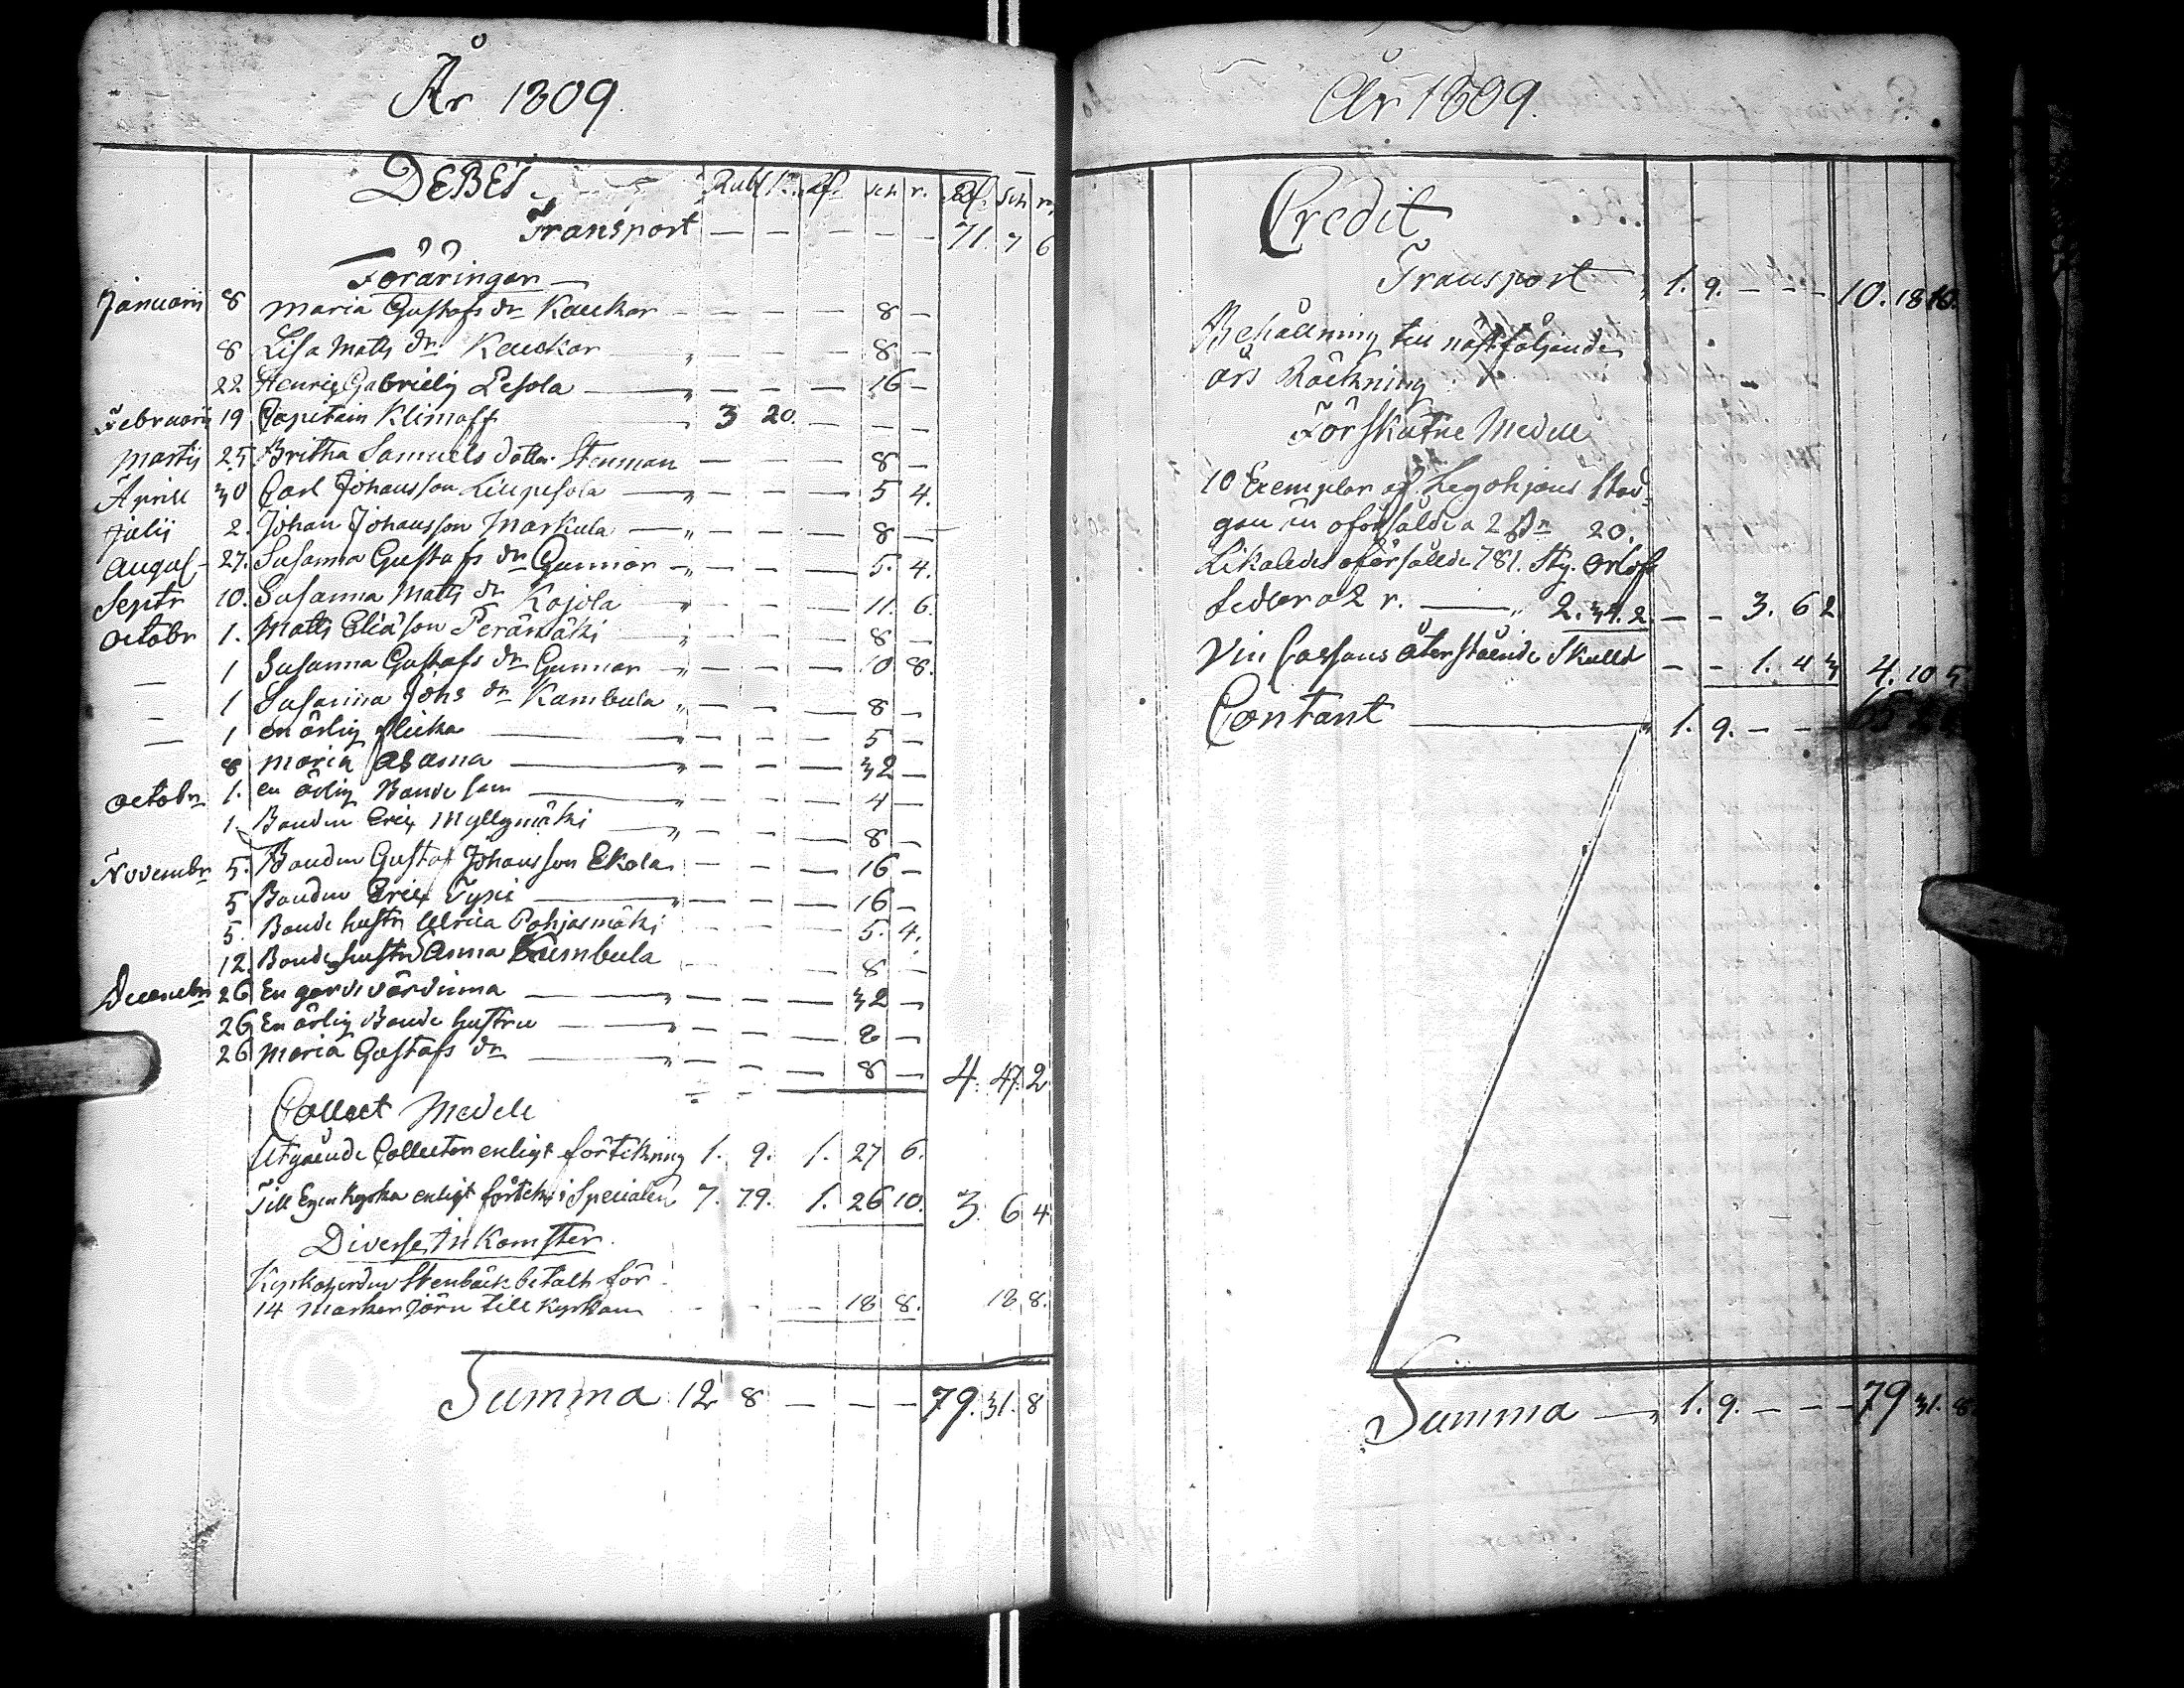 År 1809.
DEBET Rubl K. Rf. sch r. Rf. Sch r.
Transport — — — — — 71. 7 6
Föräringar
Januarii 8 Maria Gustafs dr Kauckar — — — 8 —
8 Lisa Matts dr Kauckar — — — 8 —
22 Henric Gabrielig Pesola — — — 16 —
Februarii 19 Capitain Klimoff 3 20. — — —
Martii 25 Britha Samuels dotter Stenman — — — 8 —
Aprill 30 Carl Johansson Lillpesola — — — 5 4.
Julij 2. Johan Johansson Markula — — — 8 —
August 27. Susanna Gustafs dr Gunnar — — — 5. 4.
Septr 10. Susanna Matts dr Kojola — — — 11. 6.
Octobr 1. Matts Eliäson Perämäki — — — 8 —
— 1 Susanna Gustafs dr Gunnar — — — 10 8.
— 1 Susanna Johs dr Kambula — — — 8 —
— 1 en ärlig flicka — — — 5 —
8 Maria Asama — — — 32 —
Octobr 1. en ärlig Bonde son — — — 4 —
1. Bonden Eric Myllymäki — — — 8 —
Novembr 5. Bonden Gustaf Johansson Ekola — — — 16 —
5 Bonden Eric Typpi — — — 16 —
5. Bonde hustr Ulrica Pohjasmäki — — — 5. 4.
12. Bonde hustru Anna Kambula — — — 8 —
Decembr 26 En gårds värdinna — — — 32 —
26 En ärlig Bonde hustru — — — 8 —
26 Maria Gustafs dr — — — 8 — 4. 47. 2
Collect Medell
Utgående Collecter enligt förtekning 1. 9. 1. 27 6.
Till Egen Kyrka enligt förtekn i Specialen 7. 79. 1. 26 10. 3. 6 4
Diverse Inkomster.
Kyrkoherden Stenbäck betalt för
14 Marker Jörn till Kyrkan — — — 18 8. 18. 8.
Summa 12 8 — — — 79. 31. 8
År 1809.
Credit
Transport 1. 9. — — — 10. 18 10.
Behållning till nästföljande
års Räckning
Förskutne Medell
10 Exemplar af Legohjons Stad-
gan än oförsålde a 2 sk 20.
Likaledes oförsålde 781. Sty. Orlofs
sedlar a 2 r. — 2. 34. 2 — — 3. 6 2
Vin Cassans återstående Skuld — — 1. 4 3 4. 10 5
Contant — 1. 9. — — 65
Summa — 1. 9. — — — 79 31. 8